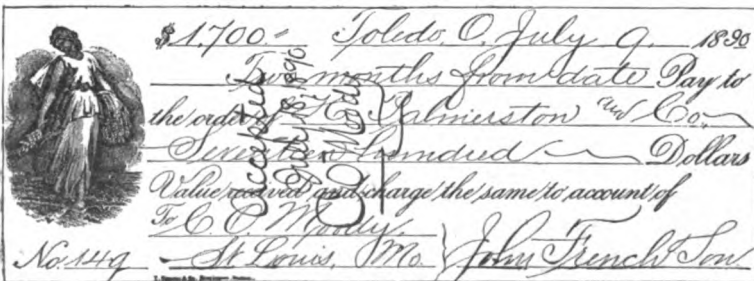 $1,700= Toledo, O. July 9 1890
Two months from date Pay to
the order of H. Palmerston and Co
Seventeen hundred Dollars
Value received and charge the same to account of
To C. O. Moody,
St Louis, Mo. John French Son
No. 149
Accepted
July 18, 1890
C.O. Moody